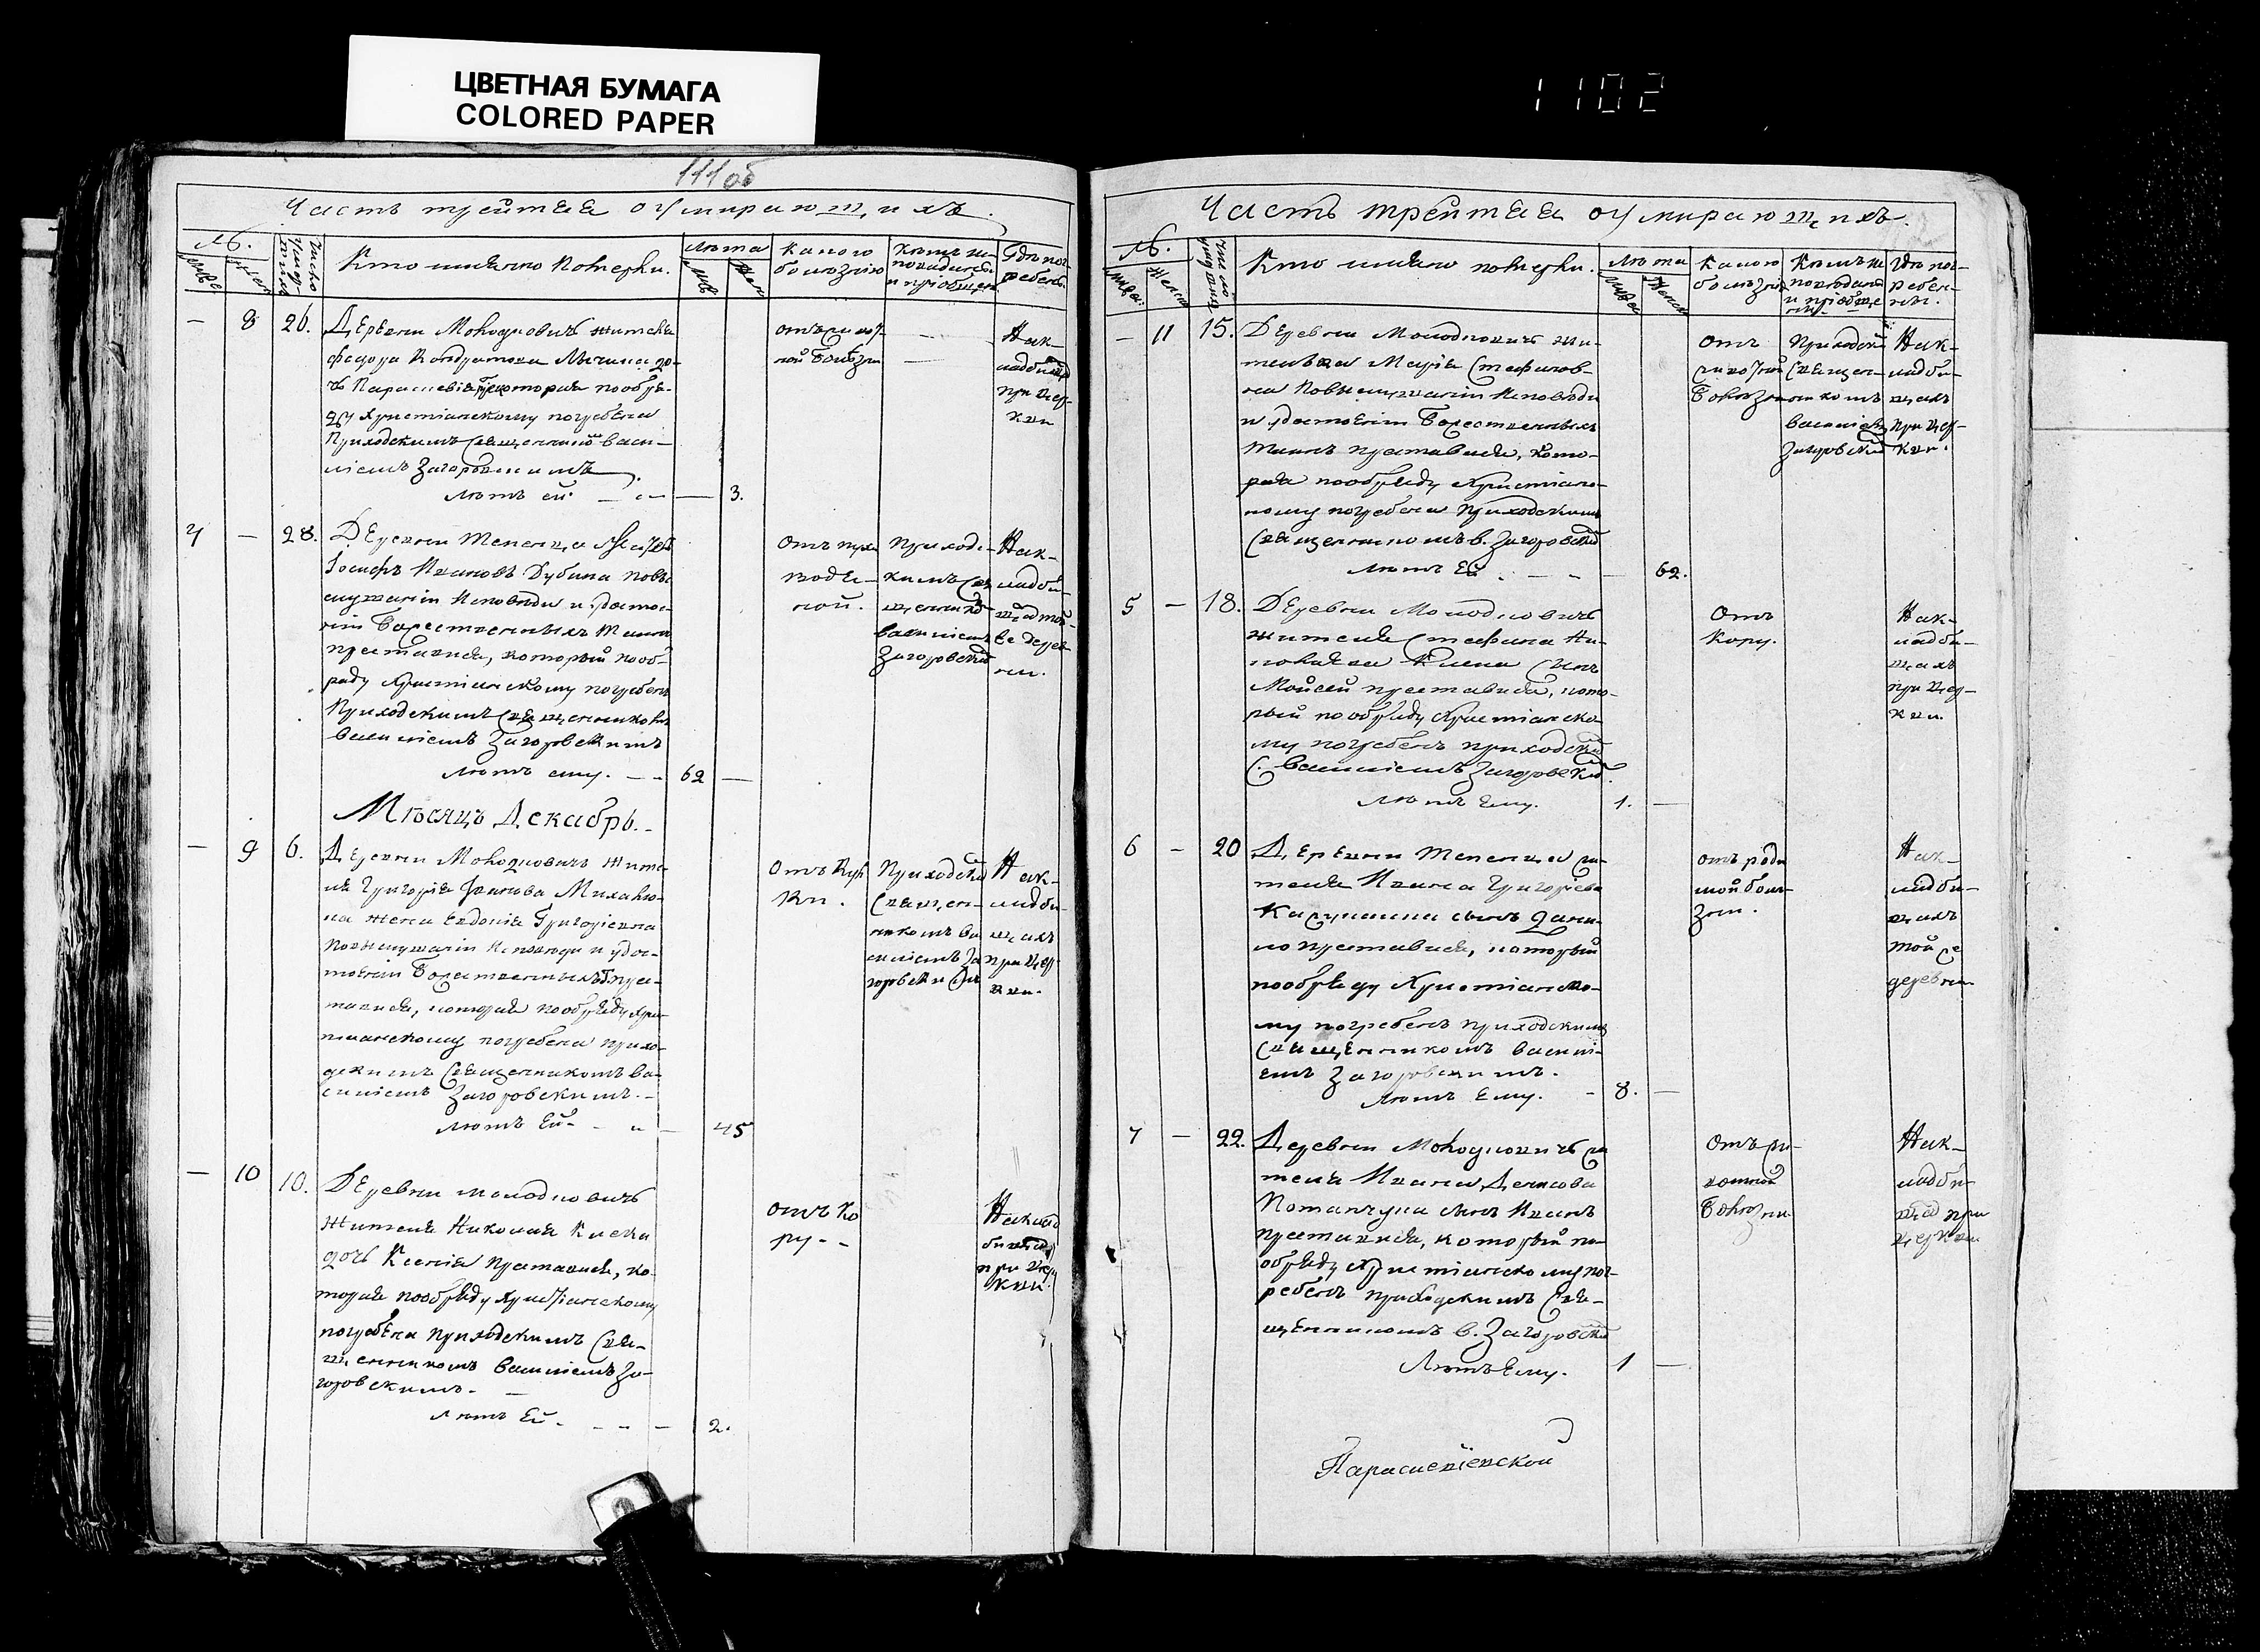 ЦВЕТНАЯ БУМАГА
COLORED PAPER
1102
111 об
Часть трейтая оумирающихъ.
№.
Число
Кто имяно померли.
Лѣта
Какою
болѣзнію
Кѣмъ ис
повѣданы
и пріобщен
Гдѣ пог
ребены.
— 8 26.
Деревни Молодковичъ жителя
Федора Кондратова
Параскевія которая по обря-
ду христіанскому погребена
Приходскимъ Священникомъ Васи-
ліемъ Загоровскимъ
Лѣтъ ей. — 3.
Нак-
ладбищахъ
при цер-
кви
4 — 28.
Деревни
Іосифъ Ивановъ Дубина повы
слушаніи Исповѣди и удостое-
ніи Божественныхъ Таинъ
преставися, который пооб-
ряду христіанскому погребенъ
Приходскимъ Священникомъ
Василіемъ Загоровскимъ
Лѣтъ ему. — 62 —
Приходс-
кимъ Свя
щенником
Василіемъ
Загоровским
Нак-
ладби-
щах той-
же дерев-
ни.
Мѣсяцъ Декабрь.
— 9 6.
Деревни Молодковичъ жите-
ля Григорія
жена Евдокія Григоріевна
повыслушаніи Исповѣди и удос-
тоеніи Божественныхъ Т. прес-
тавися, которая пообряду хрис-
тіанскому погребена прихо-
дскимъ Священникомъ Ва-
силіемъ Загоровскимъ.
Лѣтъ Ей — 45
Приходским
Священ-
никомъ Ва
силіемъ За
горовским
Нак-
ладби-
щахъ
при цер-
кви.
— 10 10.
Деревни Молодковичъ
жителя Николая
дочь Ксенія преставися, ко-
торая пообряду христіанскому
погребена приходскимъ Свя-
щенникомъ Василіемъ За-
горовскимъ.
Лѣтъ Ей — 2.
отъ Ко
ру
Наклад
бищах
при цер
кви.
Часть трейтая оумирающихъ.
№.
Число
Кто имяно померли.
Лѣта
Какою
болѣзнію
Кѣмъ ис
повѣданы
и пріобще
ны.
Гдѣ пог-
ребен-
ны.
— 11 15.
Деревни Молодковичъ жи-
телька Марія Стефанов-
на Повыслушаніи Исповѣди
и удостоеніи Божественныхъ
Таинъ преставися, кото-
рая пообряду христіанс-
кому погребена Приходскимъ
Священникомъ В. Загоровским
Лѣтъ Ей — 62.
отъ
Приходским
Священ-
никомъ
Василіемъ
Загоровским
Нак-
ладби-
щахъ
при цер-
кви.
5 — 18.
Деревни Молодковичъ
жителя Стефана Ни-
сынъ
Мойсей преставися, кото-
рый пообряду христіанско-
му погребенъ приходским
С. Василіемъ Загоровским.
Лѣтъ Ему. 1. —
Отъ
Кору.
Нак-
ладби-
щахъ
при цер-
кви.
6 — 20
Деревни жи-
теля Ивана Григоріева
сынъ Дани-
ло преставися, который
пообряду Христіанско-
му погребенъ приходскимъ
Священникомъ Василі-
емъ Загоровскимъ.
Лѣтъ Ему. — 8. —
Нак-
ладби-
щахъ
той же
деревни
7 — 22.
Деревни Молодковичъ жи
теля Ивана Денисова
сынъ Иванъ
преставися, который по
обряду христіанскому пог-
ребенъ приходскимъ Свя-
щенникомъ В. Загоровским
Лѣтъ Ему. 1 —
Нак-
ладби-
щах при
церкви
Параскевіевской